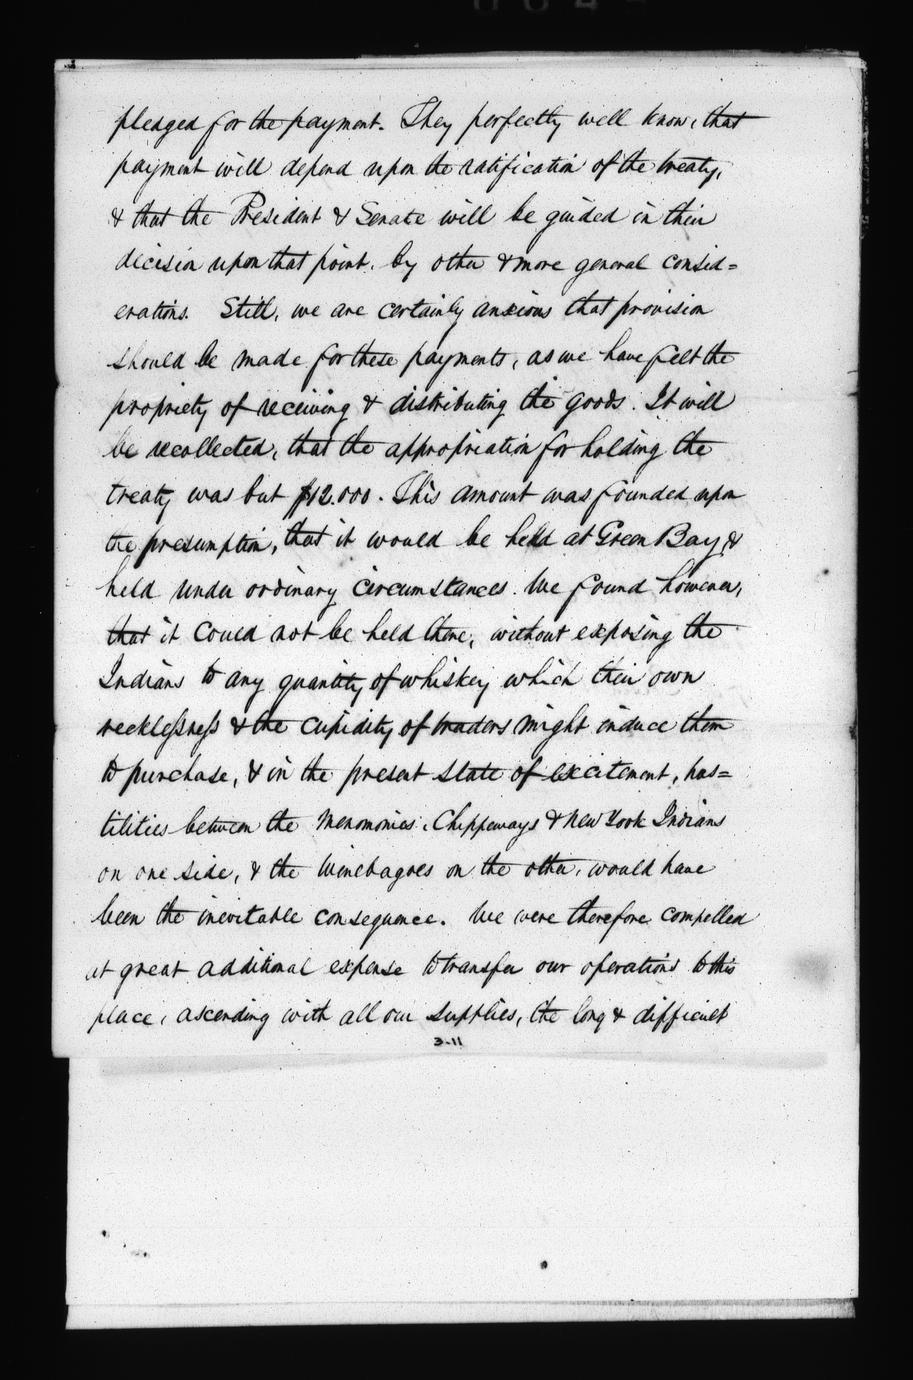 pledged for the payment. They perfectly well know, that
payment will depend upon the ratification of the treaty,
& that the President & Senate will be guided in their
decision upon that point, by other & more general consid=
erations. Still, we are certainly anxious that provision
should be made for these payments, as we have felt the
propriety of receiving & distributing the goods. It will
be recollected, that the appropriation for holding the
treaty was but $12.000. This amount was founded upon
the presumption, that it would be held at Green Bay &
held under ordinary circumstances. We found however,
that it could not be held there, without exposing the
Indians to any quantity of whiskey which their own
recklessness & the cupidity of traders might induce them
to purchase, & in the present state of excitement, hos=
tilities between the Menomonies, Chippeways & New York Indians
on one side, & the Winebagoes on the other, would have
been the inevitable consequence. We were therefore compelled
at great additional expense to transfer our operations to this
place, ascending with all our supplies, the long & difficult
3-11